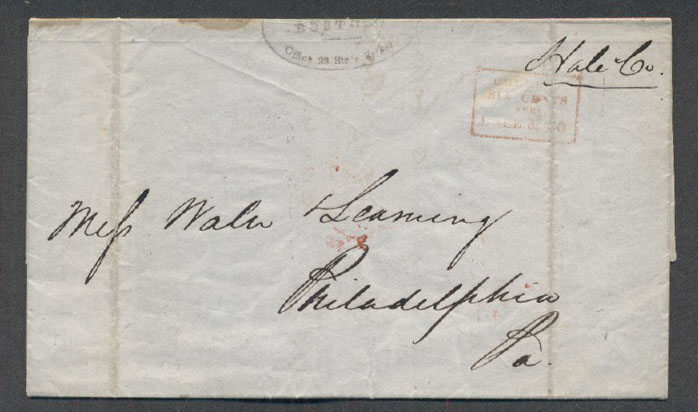 BOSTON
Office 23 State Street
Hale & Co.
SIX CENTS
Mess Waln & Leaming
Philadelphia
Pa.